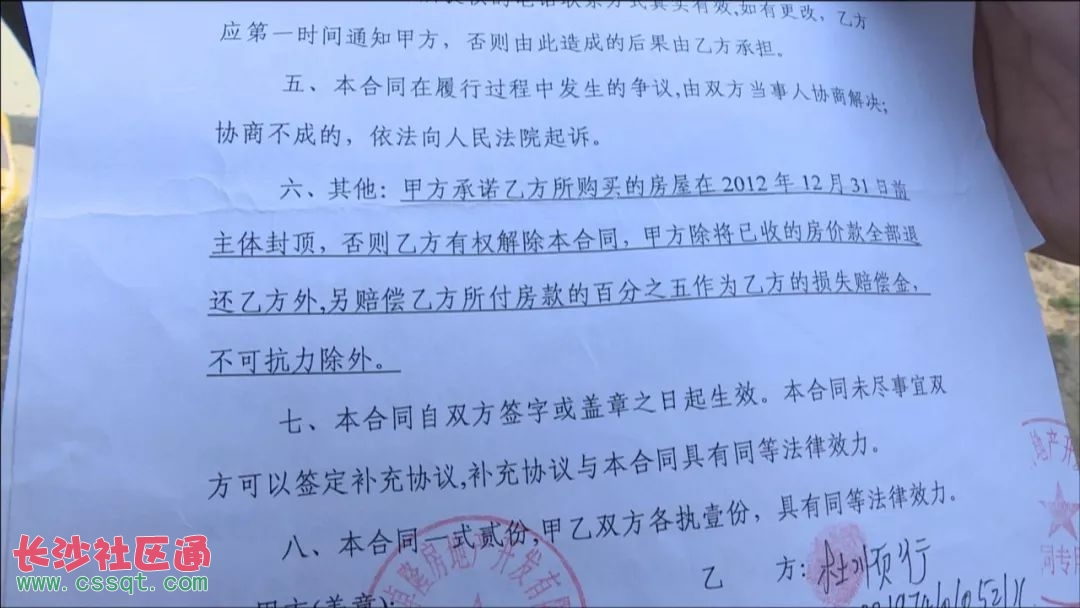 电话联系方式真实有效,如有更改，乙方
应第一时间通知甲方，否则由此造成的后果由乙方承担。
五、本合同在履行过程中发生的争议,由双方当事人协商解决;
协商不成的，依法向人民法院起诉。
六、其他: 甲方承诺乙方所购买的房屋在 2012 年 12 月 31 日前
主体封顶，否则乙方有权解除本合同，甲方除将已收的房价款全部退
还乙方外,另赔偿乙方所付房款的百分之五作为乙方的损失赔偿金，
不可抗力除外。
七、本合同自双方签字或盖章之日起生效。本合同未尽事宜双
方可以签定补充协议,补充协议与本合同具有同等法律效力。
八、本合同一式贰份,甲乙双方各执壹份，具有同等法律效力。
甲方(盖章):
乙 方:
房地产开发有限
地产开
同专用
长沙社区通
www.cssqt.com